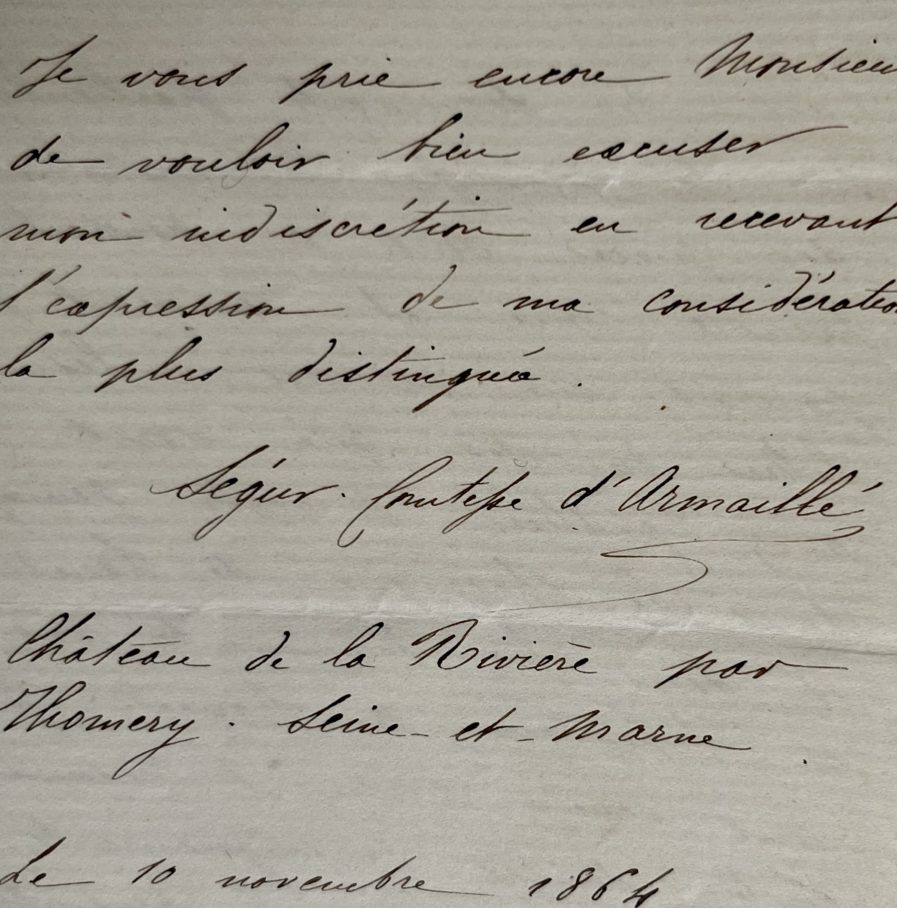 Je vous prie encore Monsieur
de vouloir bien excuser
mon indiscrétion en recevant
l'expression de ma considération
la plus distinguée.
Ségur. Comtesse d'Armaillé
Château de la Rivière par
Thomery. Seine-et-Marne.
Le 10 novembre 1864